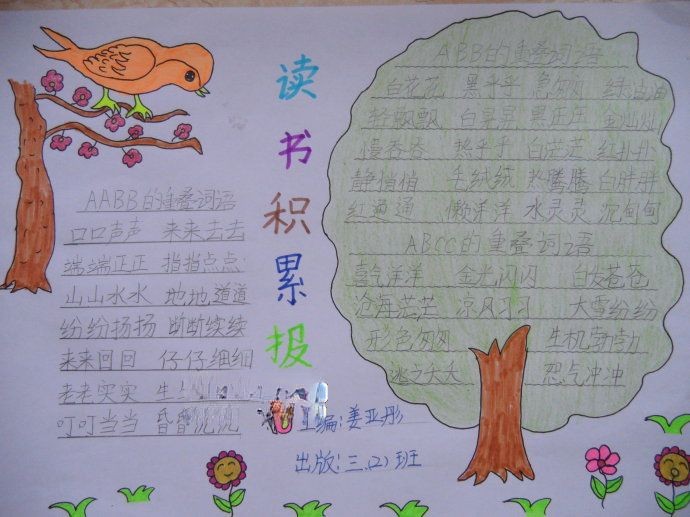 读书积累报
AABB的重叠词语
口口声声 来来去去
端端正正 指指点点
山山水水 地地道道
纷纷扬扬 断断续续
来来回回 仔仔细细
老老实实 生
叮叮当当 昏昏沉沉
ABB的重叠词语
白花花 黑乎乎 急匆匆 绿油油
轻飘飘 白皑皑 黑压压 金灿灿
慢吞吞 热乎乎 白茫茫 红扑扑
静悄悄 毛绒绒 热腾腾 白胖胖
红通通 懒洋洋 水灵灵 沉甸甸
ABCC的重叠词语
喜气洋洋 金光闪闪 白发苍苍
沧海茫茫 凉风习习 大雪纷纷
形色匆匆 生机勃勃
逃之夭夭 怒气冲冲
主编:姜亚彤
出版:三.(2)班